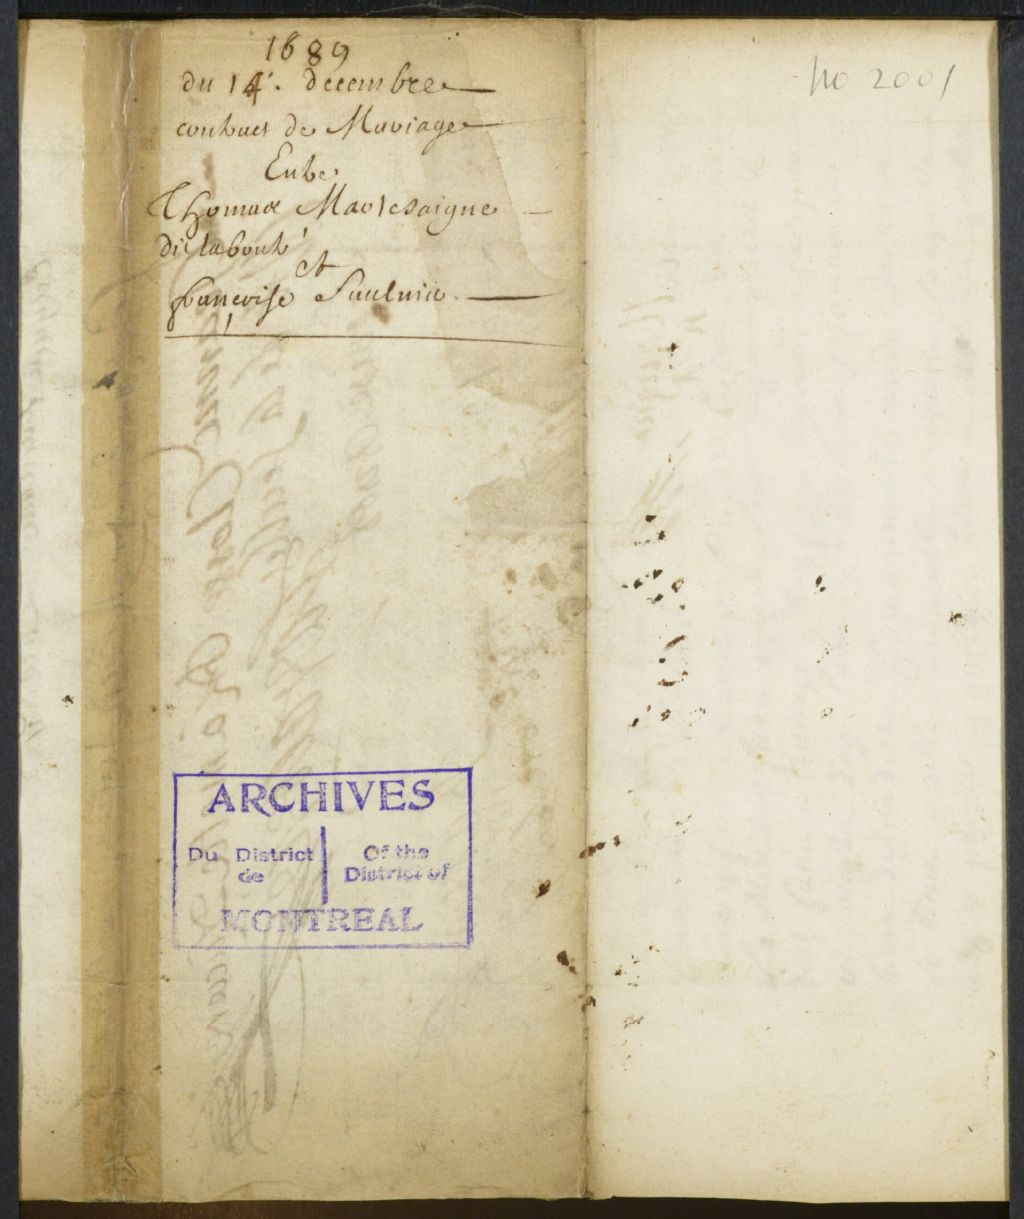 1689
du 14e. decembre
contract de Mariage
Entre
Thomas Martesaigne
dit labonté
et
françoise Saulnié
No 2001
ARCHIVES
Du District de
Of the District of
MONTREAL